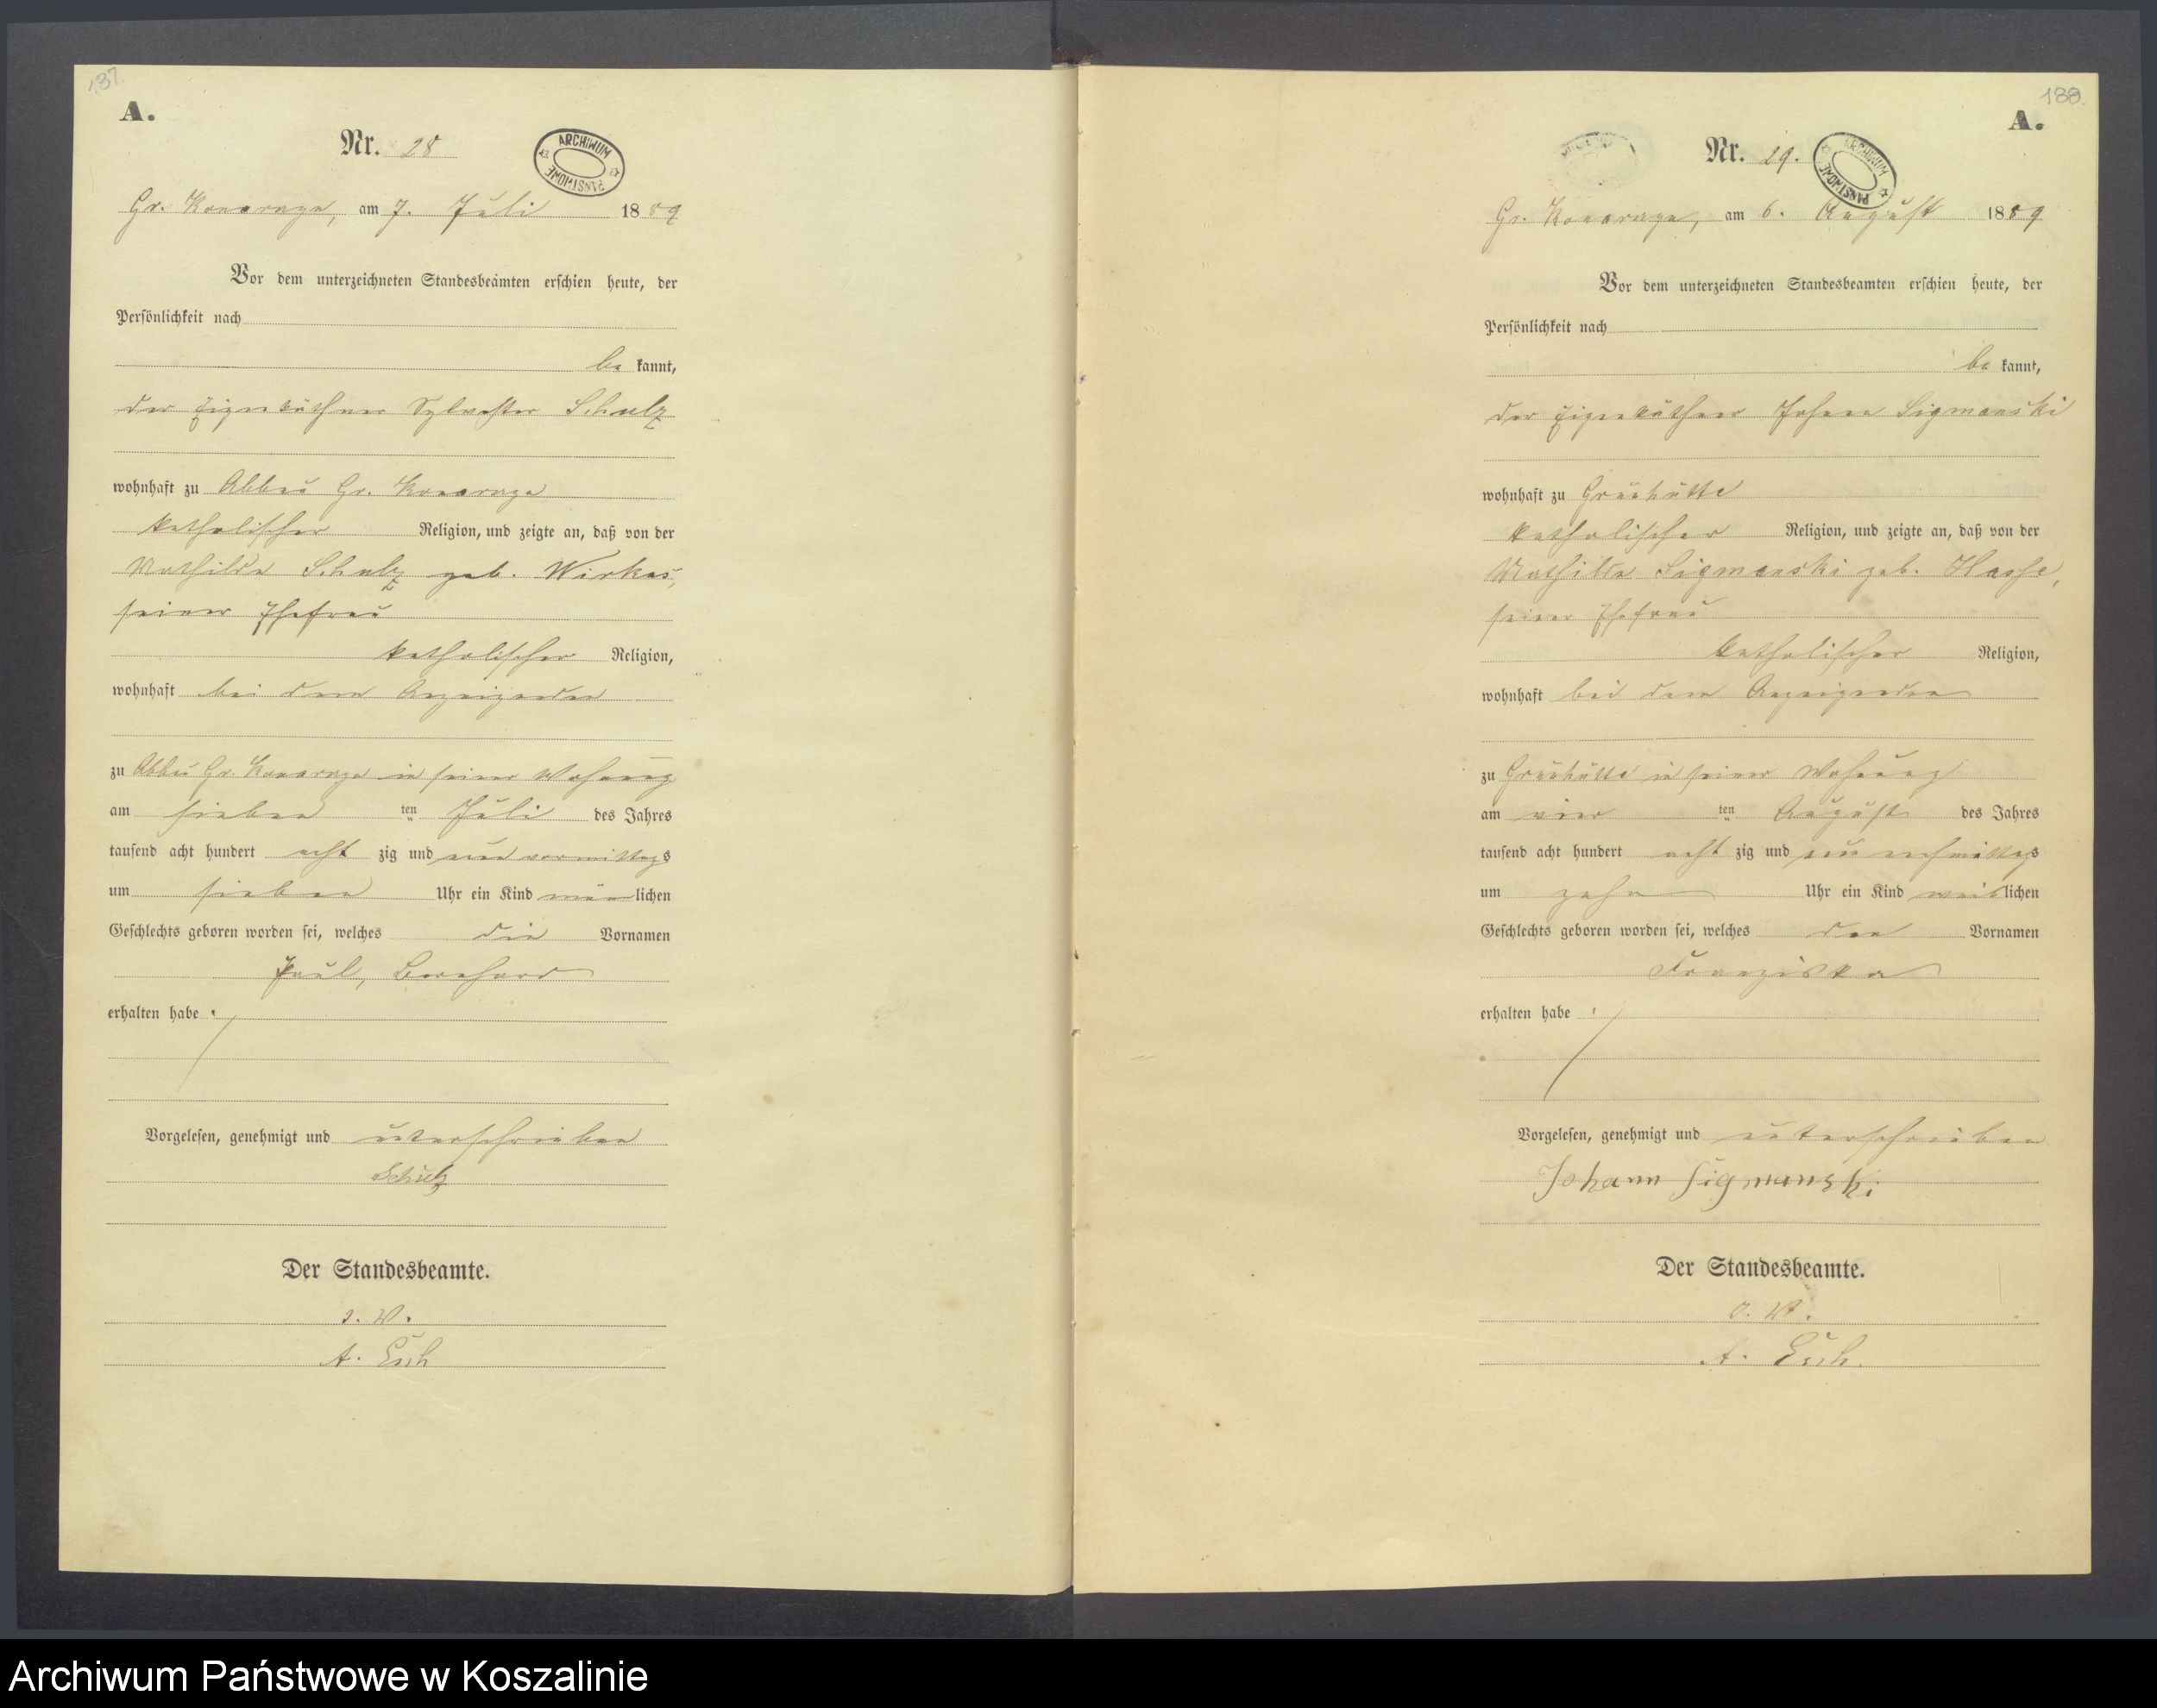 137.
A.
Nr. 28
ARCHIWUM PAŃSTWOWE
Gr. Konarzyn, am 7. Juli 1889
Vor dem unterzeichneten Standesbeamten erschien heute, der
Persönlichkeit nach
be kannt,
der Eigenkäthner Sylvester Schulz
wohnhaft zu Abbau Gr. Konarzyn
katholischer Religion, und zeigte an, daß von der
Mathilde Schulz geb. Wirkus,
seiner Ehefrau
katholischer Religion,
wohnhaft bei dem Anzeigenden
zu Abbau Gr. Konarzyn in seiner Wohnung
am sieben ten Juli des Jahres
tausend acht hundert acht zig und neun vormittags
um sieben Uhr ein Kind männlichen
Geschlechts geboren worden sei, welches die Vornamen
Paul, Bernhard
erhalten habe.
Vorgelesen, genehmigt und unterschrieben
Schulz
Der Standesbeamte.
A. Esch
138.
A.
Nr. 29.
ARCHIWUM PAŃSTWOWE
Gr. Konarzyn, am 6. August 1889
Vor dem unterzeichneten Standesbeamten erschien heute, der
Persönlichkeit nach
be kannt,
der Eigenkäthner Johann Sigmanski
wohnhaft zu Grünhütte
katholischer Religion, und zeigte an, daß von der
Mathilde Sigmanski geb. Hasse,
seiner Ehefrau
katholischer Religion,
wohnhaft bei dem Anzeigenden
zu Grünhütte in seiner Wohnung
am vier ten August des Jahres
tausend acht hundert acht zig und neun nachmittags
um zehn Uhr ein Kind weiblichen
Geschlechts geboren worden sei, welches den Vornamen
Franziska
erhalten habe.
Vorgelesen, genehmigt und unterschrieben
Johann Sigmanski
Der Standesbeamte.
A. Esch.
Archiwum Państwowe w Koszalinie